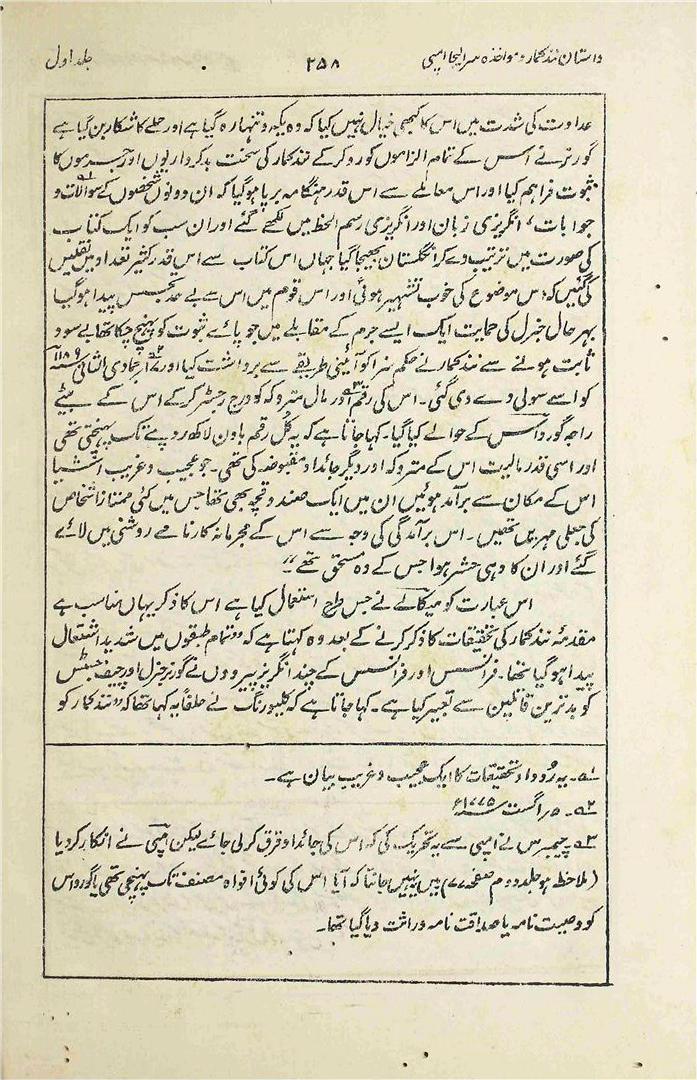 داستان نند کمار و مواخذہ سر ایلیجا امپی ۲۵۸ جلد اول
عداوت کی شدت میں اس کا کبھی خیال نہیں کیا کہ وہ یکہ و تنہا رہ گیا ہے اور حملے کا شکار بن گیا ہے
گورنر نے اس کے تمام الزاموں کو رو کر کے نند کمار کی سخت بدکرداریوں اور جرموں کا
ثبوت فراہم کیا اور اس معاملے سے اس قدر ہنگامہ برپا ہو گیا کہ ان دونوں شخصوں کے سوالات و
جوابات، انگریزی زبان اور انگریزی رسم الخط میں لکھے گئے اور ان سب کو ایک کتاب
کی صورت میں ترتیب دے کر انگلستان بھیجا گیا جہاں اس کتاب سے اس قدر کثیر تعداد میں نقلیں
کی گئیں کہ اس موضوع کی خوب تشہیر ہوئی اور اس قوم میں اس سے بے حد تجسس پیدا ہو گیا
بہر حال جنرل کی حمایت ایک ایسے جرم کے مقابلے میں جو پائے ثبوت کو پہنچ چکا تھا بے سود
ثابت ہونے سے نند کمار نے حکم سزا کو آئینی طریقے سے برداشت کیا اور ۷ر جمادی الثانی ۱۱۸۹ھ
کو اسے سولی دے دی گئی۔ اس کی رقم اور مال متروکہ کو درج رجسٹر کر کے اس کے بیٹے
راجہ گورداس کے حوالے کیا گیا۔ کہا جاتا ہے کہ یہ کُل رقم باون لاکھ روپے تک پہنچتی تھی
اور اسی قدر مالیت اس کے متروکہ اور دیگر جائداد مقبوضہ کی تھی۔ جو عجیب و غریب اشیا
اس کے مکان سے برآمد ہوئیں ان میں ایک صندوقچہ بھی تھا جس میں کئی ممتاز اشخاص
کی جعلی مہریں تھیں۔ اس برآمدگی کی وجہ سے اس کے مجرمانہ کارنامے روشنی میں لائے
گئے اور ان کا وہی حشر ہوا جس کے وہ مستحق تھے"
اس عبارت کو میکالے نے جس طرح استعمال کیا ہے اس کا ذکر یہاں مناسب ہے
مقدمۂ نند کمار کی تحقیقات کا ذکر کرنے کے بعد وہ کہتا ہے کہ "تمام طبقوں میں شدید اشتعال
پیدا ہو گیا تھا۔ فرانسس اور فرانسس کے چند انگریز پیروؤں نے گورنر جنرل اور چیف جسٹس
کو بدترین قاتلین سے تعبیر کیا ہے۔ کہا جاتا ہے کہ کلیورنگ نے حلفاً یہ کہا تھا کہ "نند کمار کو
۱؎۔ یہ رُوداد تحقیقات کا ایک عجیب و غریب بیان ہے۔
۲؎۔ ۵ر اگست ۱۷۷۵ء
۳؎ چیمبرس نے امپی سے یہ تحریک کی کہ اس کی جائداد قرق کر لی جائے لیکن امپی نے انکار کر دیا
(ملاحظہ ہو جلد دوم صفحہ ۷۷) میں نہیں جانتا کہ آیا اس کی کوئی افواہ مصنف تک پہنچی تھی یا گورداس
کو وصیت نامہ یا صداقت نامہ وراثت دیا گیا تھا۔